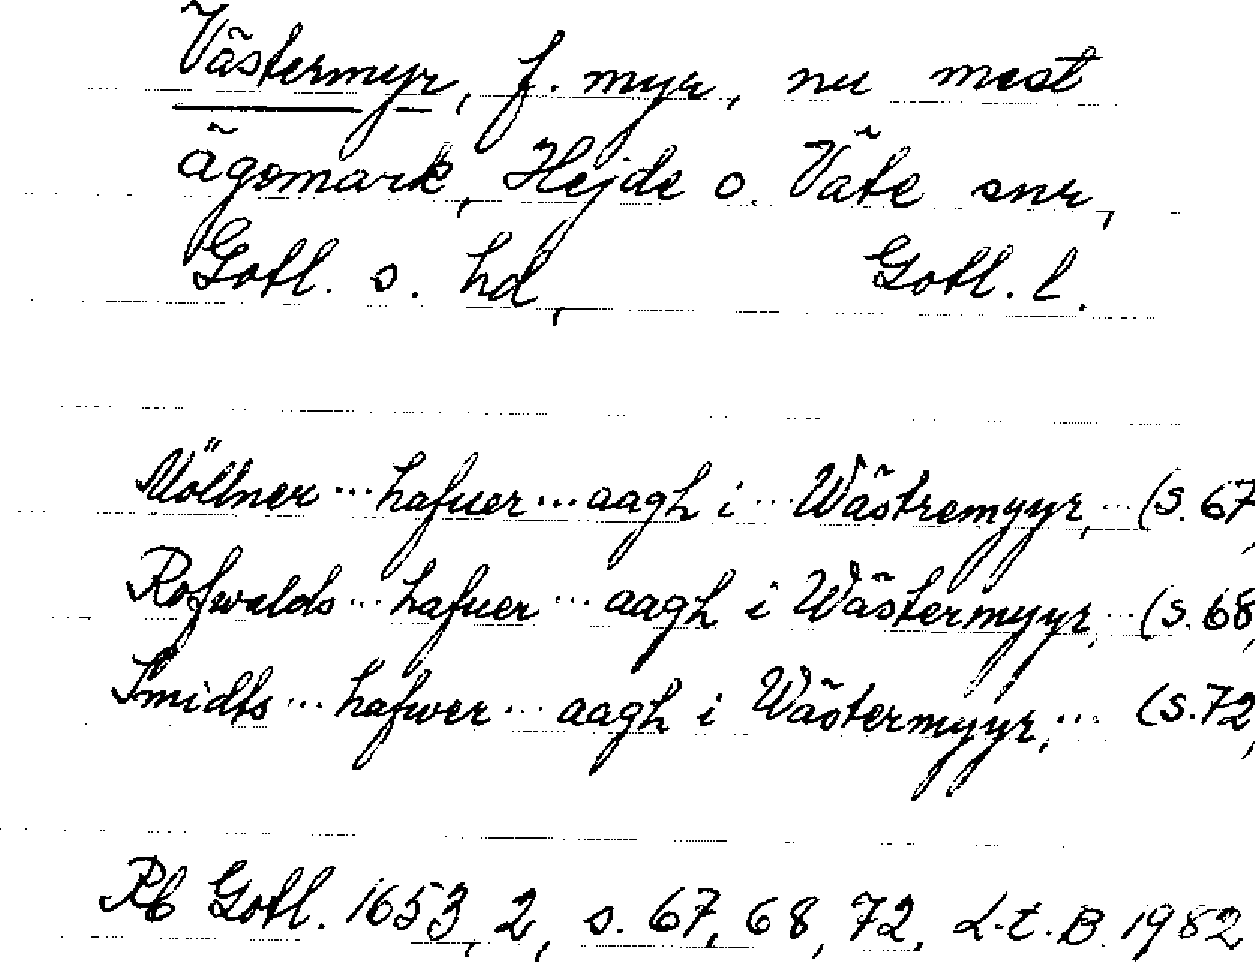 Västermyr, f. myr, nu mest
ägomark, Hejde o. Väte snr,
Gotl. s. hd, Gotl. l.
Möllner ... hafuer ... aagh i ... Wästremyyr, ... (s. 67,
Rofwalds ... hafuer ... aagh i Wästermyyr, ... (s. 68,
Smidts ... hafwer ... aagh i Wästermyyr, ... (s. 72,
Rb Gotl. 1653, 2, s. 67, 68, 72. L.t.B. 1982